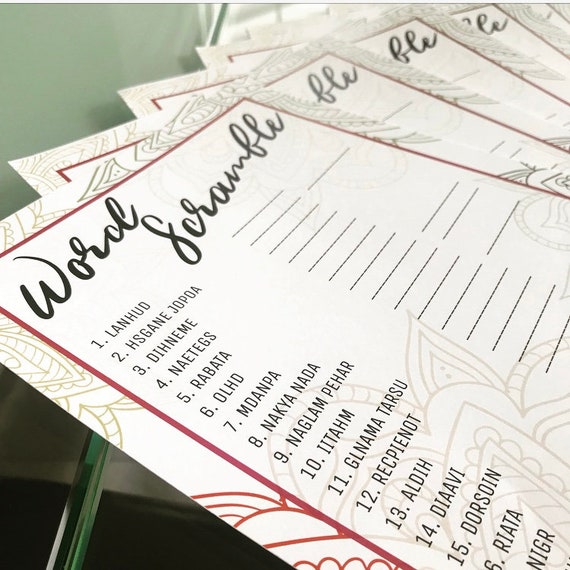 Word
Scramble
ble
ble
1. LANHUD
2. HSGANE JOPOA
3. DIHNEME
4. NAETEGS
5. RABATA
6. OLHD
7. MDANPA
8. NAKYA NADA
9. NAGLAM PEHAR
10. IITAHM
11. GLNAMA TARSU
12. RECPIENOT
13. ALDIH
14. DIAAVI
15. DORSOIN
6. RIATA
NIGR